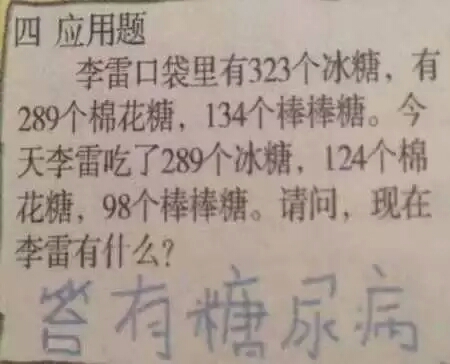 四 应用题
李雷口袋里有323个冰糖，有
289个棉花糖，134个棒棒糖。今
天李雷吃了289个冰糖，124个棉
花糖，98个棒棒糖。请问，现在
李雷有什么？
答有糖尿病